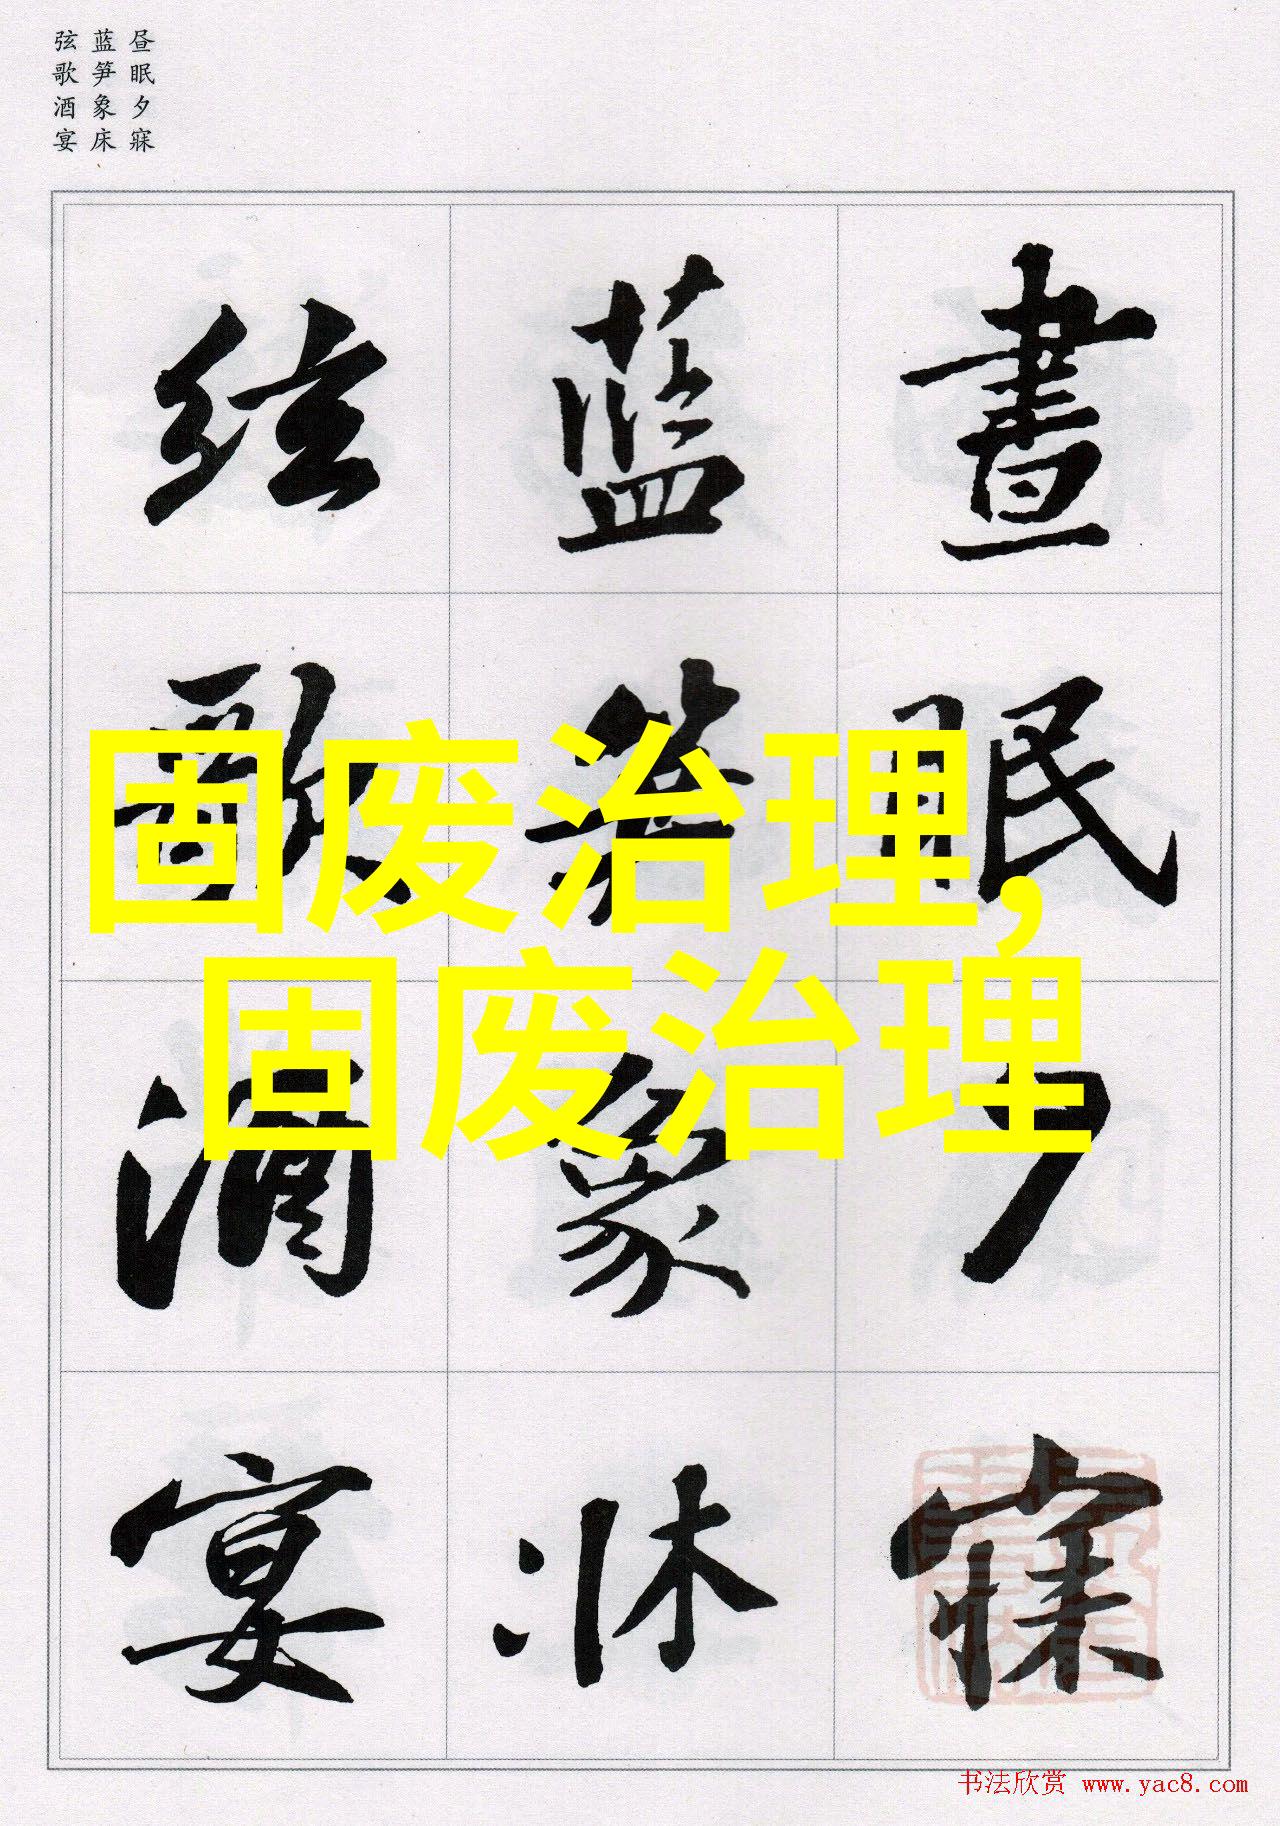 昼眠夕寐
蓝笋象床
弦歌酒宴
晝眠夕寐
藍笋象牀
絃歌酒宴
固废治理,
固废治理
书法欣赏 www.yac8.com